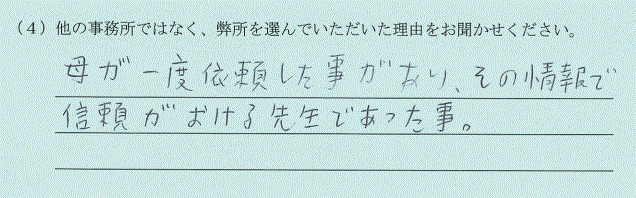 （4）他の事務所ではなく、弊所を選んでいただいた理由をお聞かせください。
母が一度依頼した事があり、その情報で
信頼がおける先生であった事。